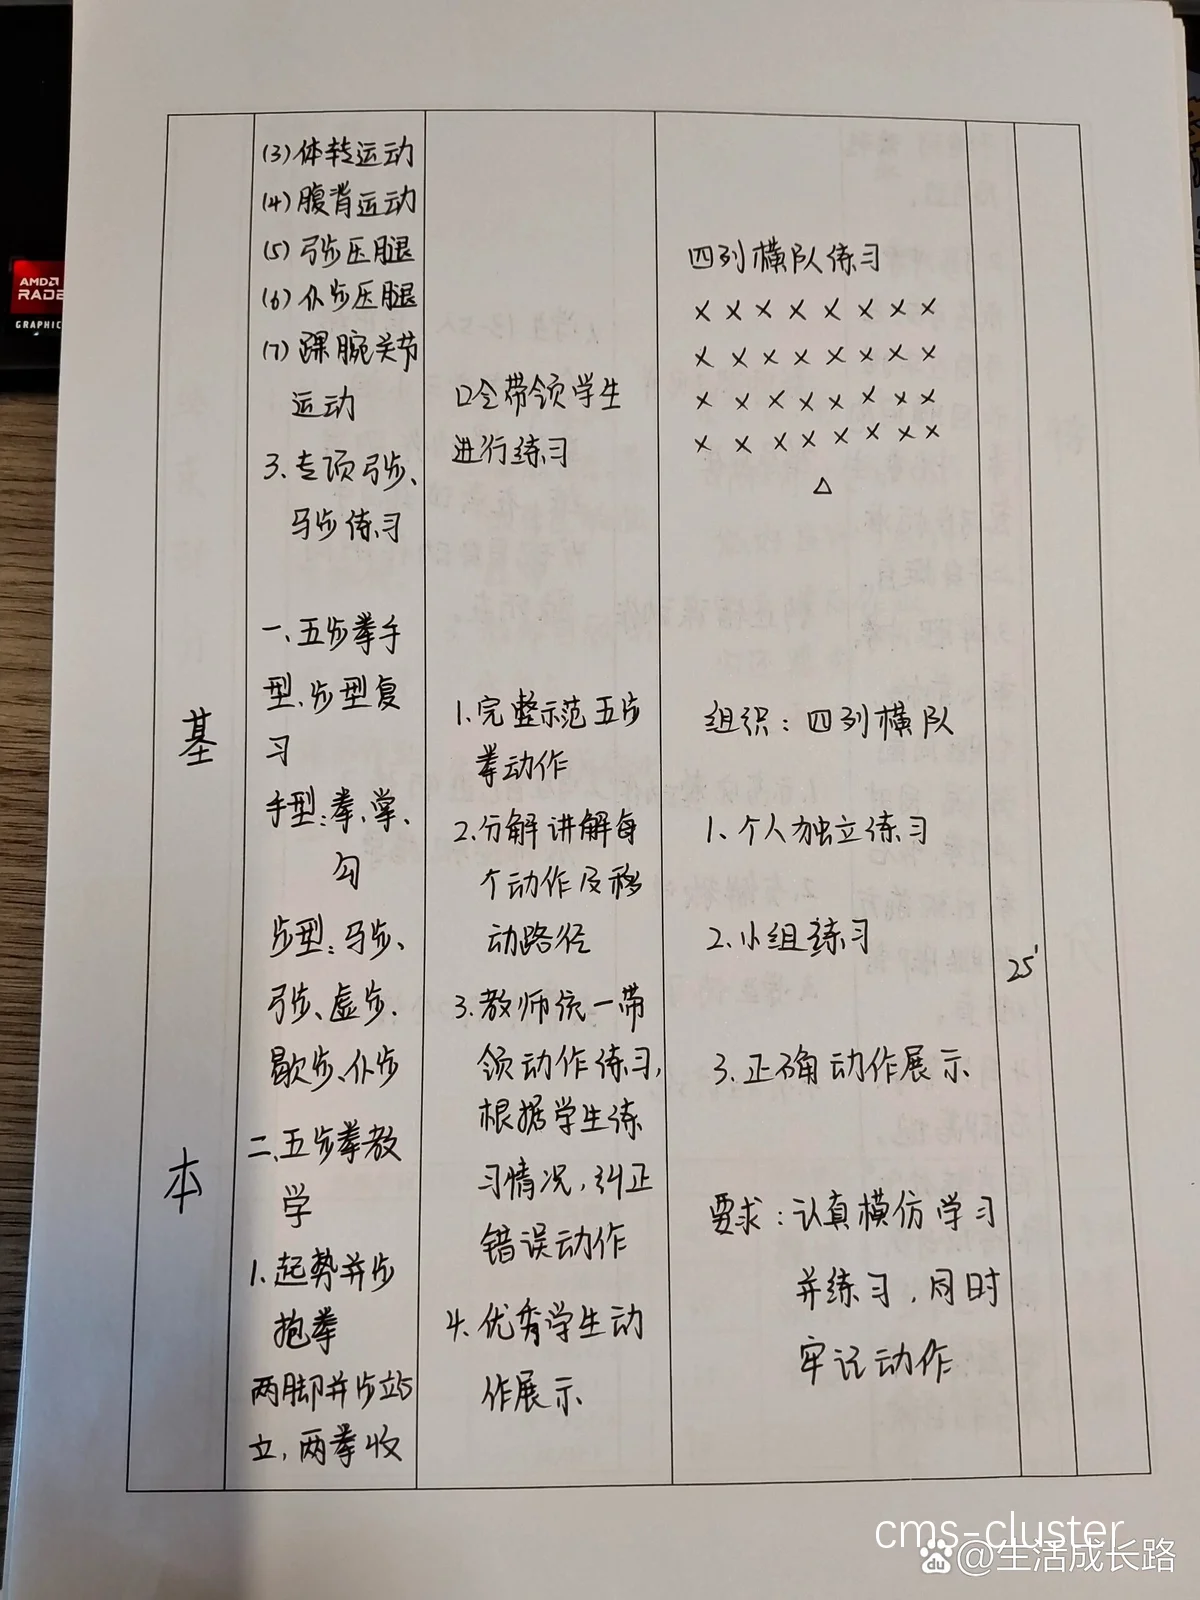 AMD
RADE
GRAPHIC
(3)体转运动
(4)腹背运动
(5)弓步压腿
(6)仆步压腿
(7)踝腕关节
运动
3.专项弓步、
马步练习
一、五步拳手
型、步型复
习
手型:拳、掌、
勾
步型:马步、
弓步、虚步、
歇步、仆步
二、五步拳教
学
1.起势并步
抱拳
两脚并步站
立,两拳收
基
本
口令带领学生
进行练习
1.完整示范五步
拳动作
2.分解讲解每
个动作及移
动路径
3.教师统一带
领动作练习,
根据学生练
习情况,纠正
错误动作
4.优秀学生动
作展示
四列横队练习
× × × × × × × ×
× × × × × × × ×
× × × × × × × ×
× × × × × × × ×
△
组织:四列横队
1.个人独立练习
2.小组练习
3.正确动作展示
要求:认真模仿学习
并练习,同时
牢记动作
25'
cms-cluster
Bai du @生活成长路